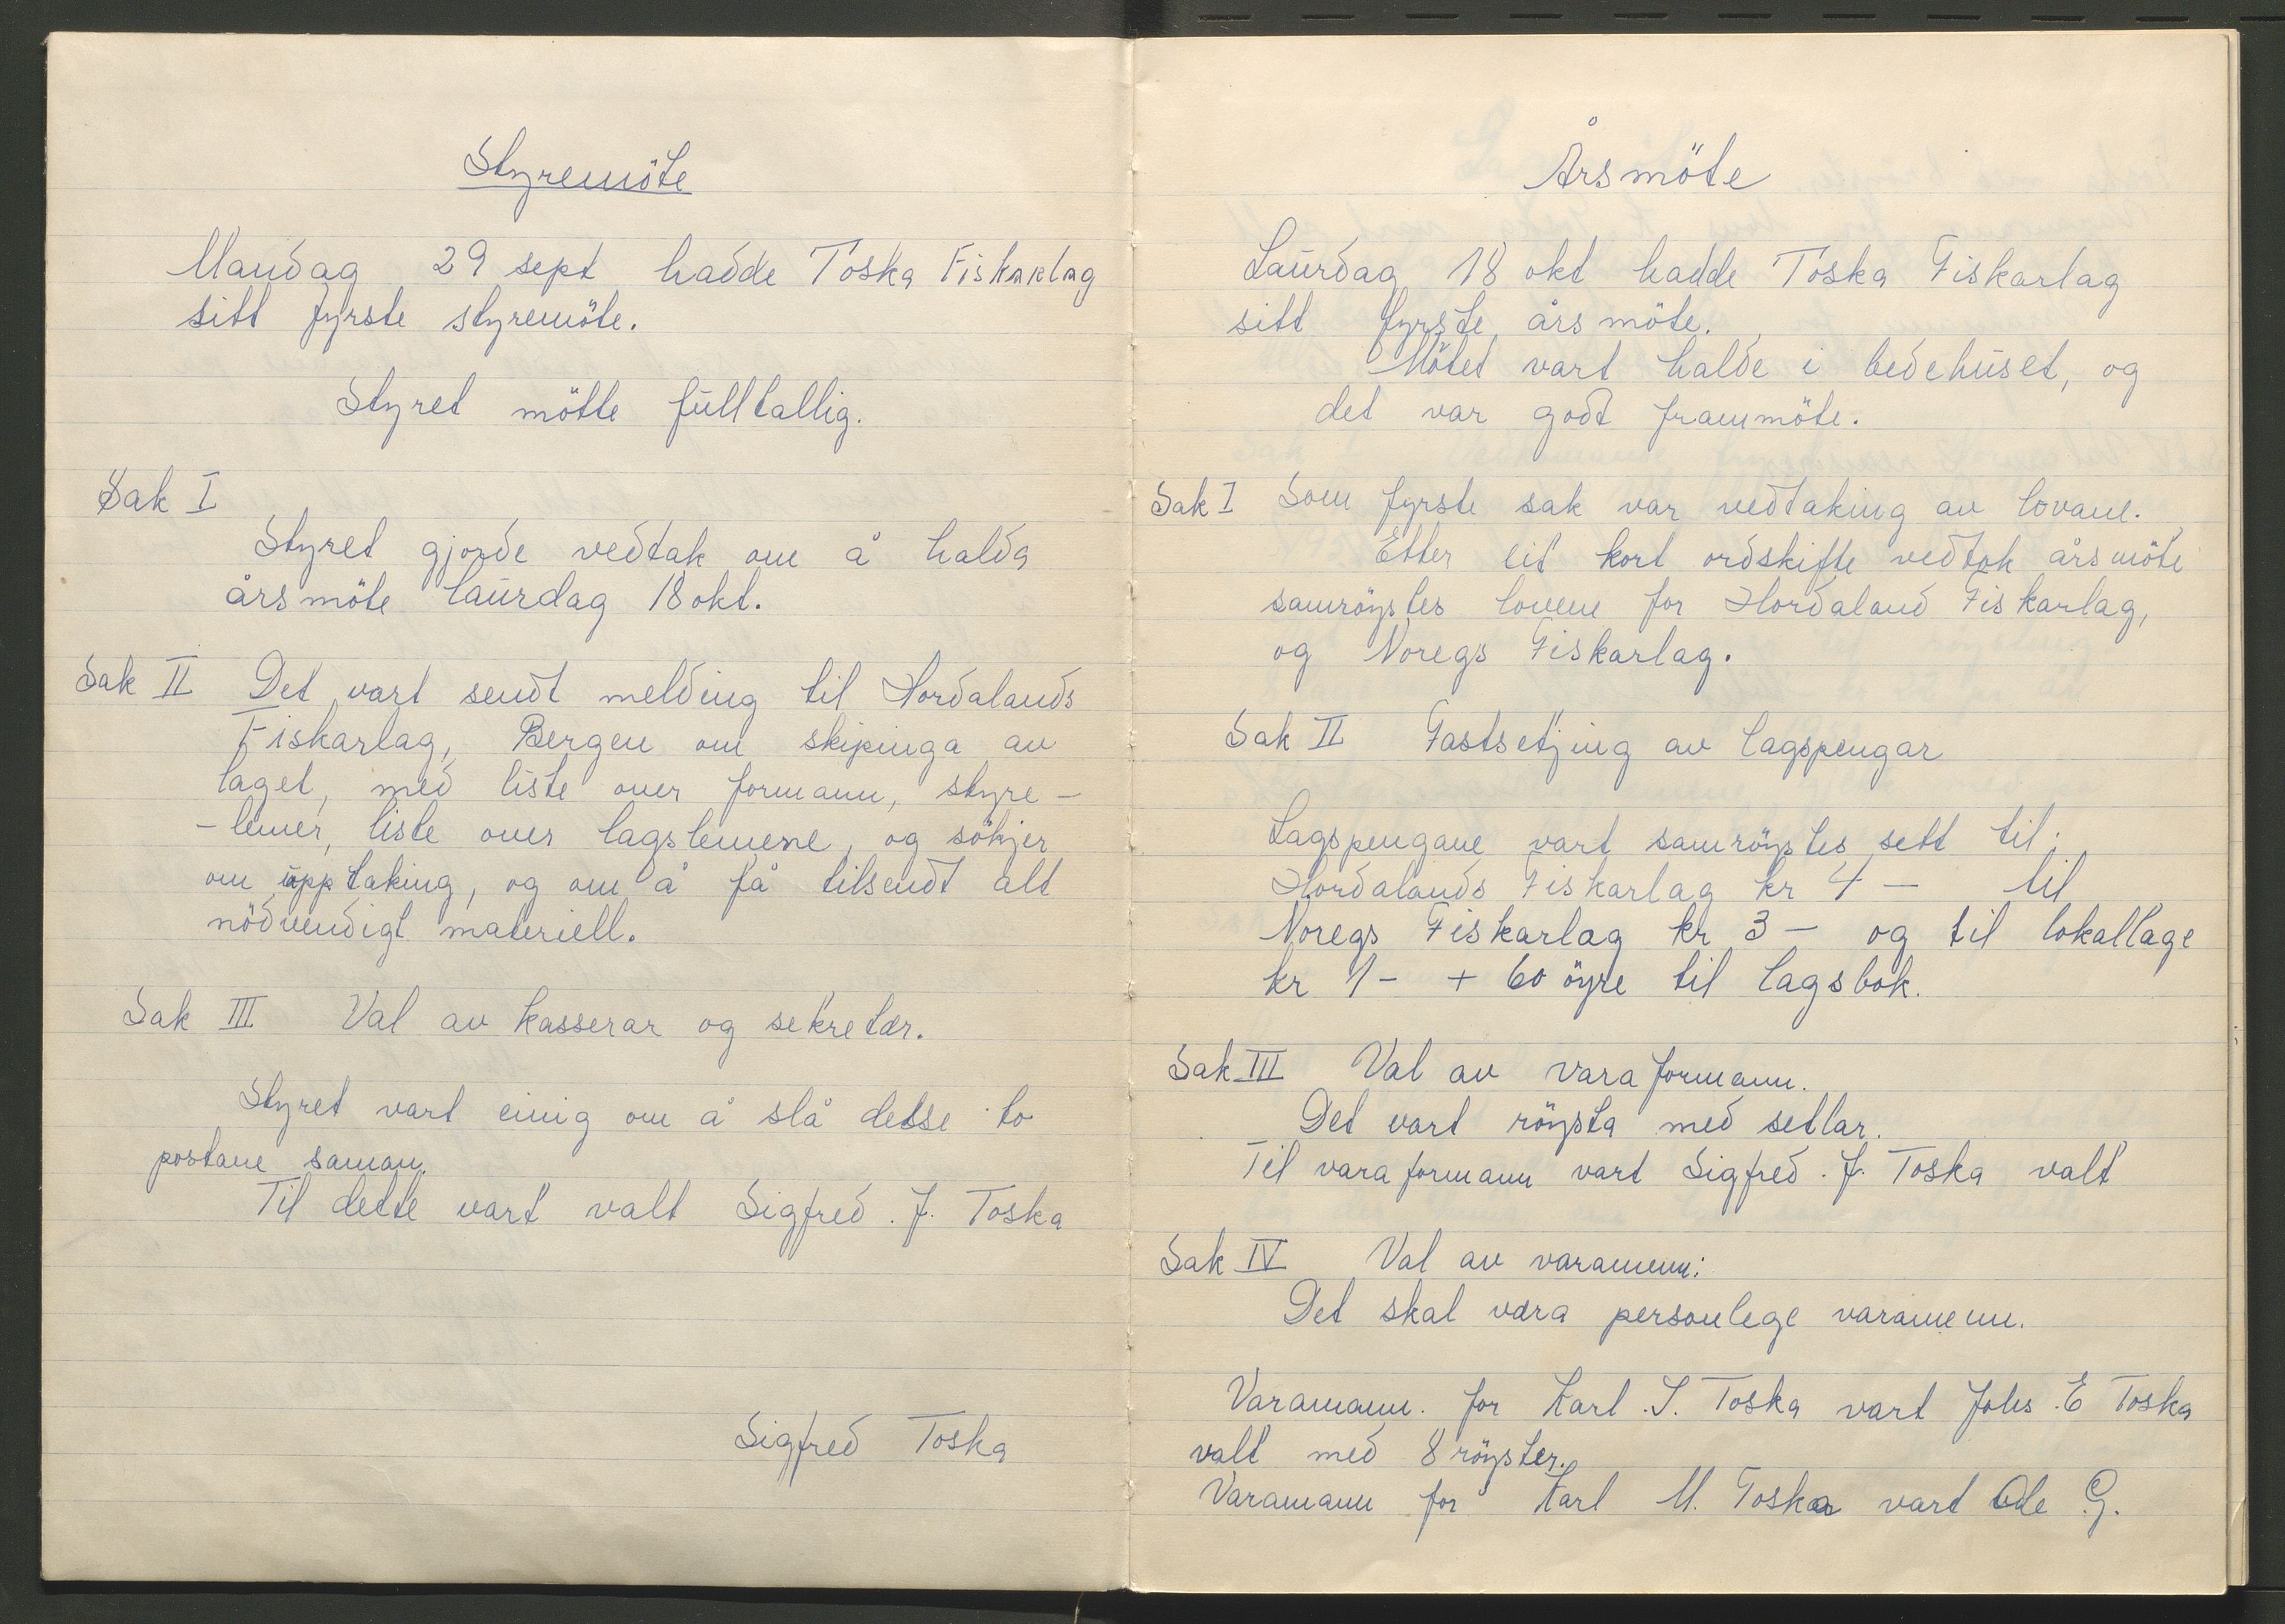 Styremöte
Mandag 29 sept hadde Toska Fiskarlag
sitt fyrste styremöte.
Styret mötte fulltallig.
Sak I
Styret gjorde vedtak om å halda
årsmöte laurdag 18 okt.
Sak II Det vart sendt melding til Hordalands
Fiskarlag, Bergen om skipinga av
laget, med liste over formann, styre-
-lemer, liste over lagslemene, og sökjer
om upptaking, og om å få tilsendt alt
nödvendigt materiell.
Sak III Val av kasserar og sekretær.
Styret vart einig om å slå detse to
postane saman.
Til dette vart valt Sigfred. J. Toska
Sigfred Toska
Årsmöte
Laurdag 18 okt hadde Toska Fiskarlag
sitt fyrste årsmöte.
Mötet vart halde i bedehuset, og
det var godt frammöte.
Sak I Som fyrste sak var vedtaking av lovane.
Etter eit kort ordskifte vedtok årsmöte
samröystes lovene for Hordaland Fiskarlag,
og Noregs Fiskarlag.
Sak II Fastsetjing av lagspengar
Lagspengane vart samröystes sett til;
Hordalands Fiskarlag kr 4 - til
Noregs Fiskarlag kr 3 - og til lokallage
kr 1 - + 60 öyre til lagsbok.
Sak III Val av varaformann.
Det vart röysta med setlar.
Til varaformann vart Sigfred. J. Toska valt
Sak IV Val av varamenn:
Det skal vera personlege varamenn.
Varamann. for Karl. J. Toska vart Johs. E Toska
valt med 8 röyster.
Varamann for Karl M. Toska vart Ole G.